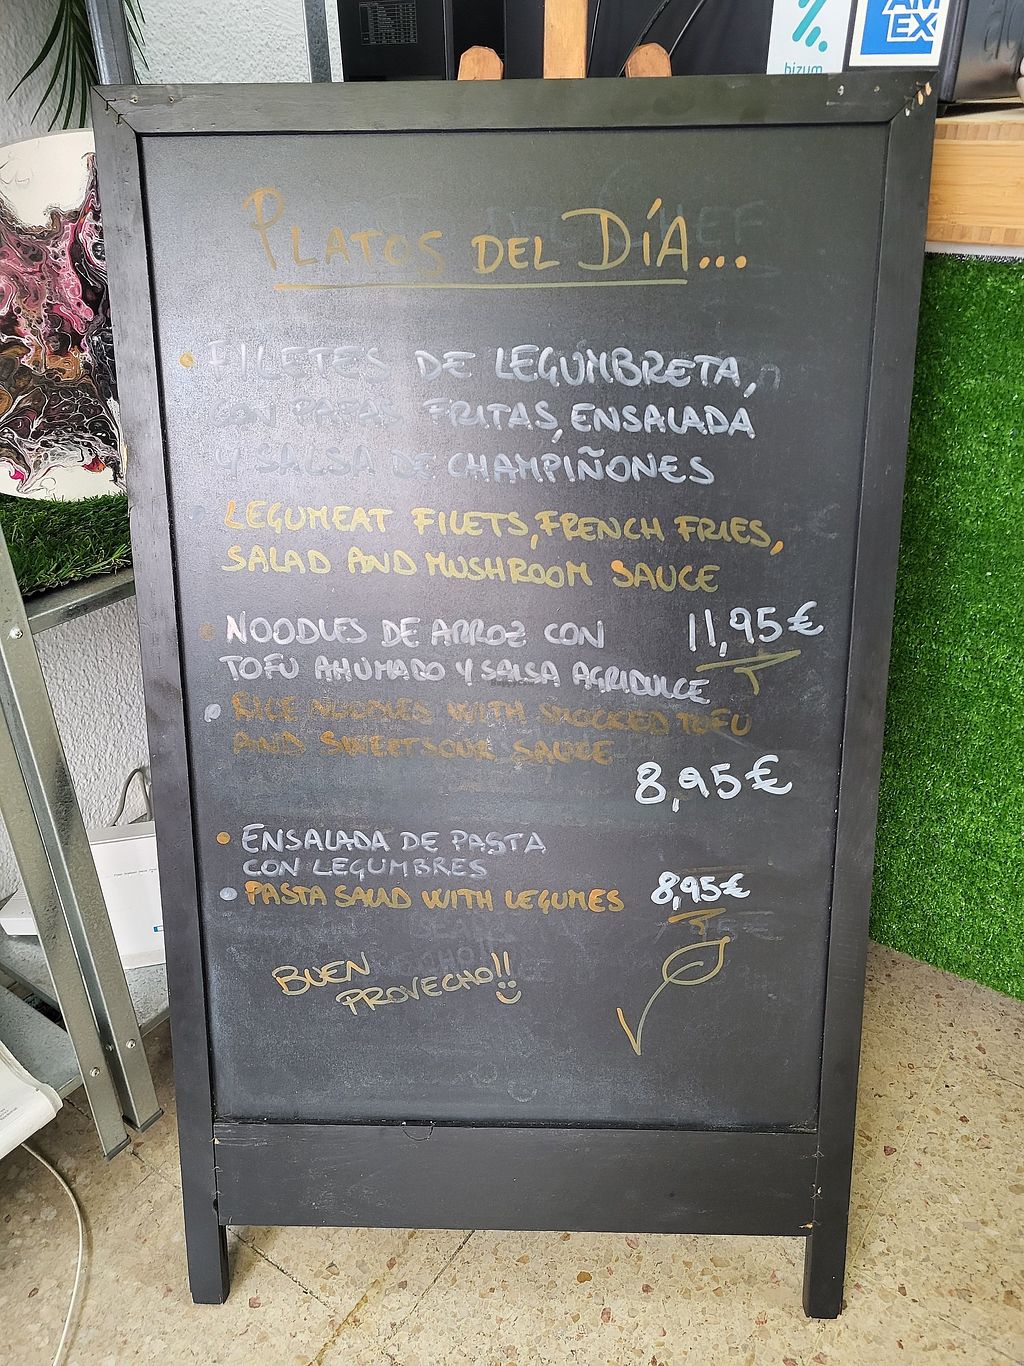 AM
EX
bizum
PLATOS DEL DÍA...
FILETES DE LEGUMBRETA,
CON PAPAS FRITAS, ENSALADA
Y SALSA DE CHAMPIÑONES
LEGUMEAT FILETS, FRENCH FRIES,
SALAD AND MUSHROOM SAUCE
11,95€
NOODLES DE ARROZ CON
TOFU AHUMADO Y SALSA AGRIDULCE
RICE NOODLES WITH SMOCKED TOFU
AND SWEETSOUR SAUCE
8,95€
ENSALADA DE PASTA
CON LEGUMBRES
PASTA SALAD WITH LEGUMES 8,95€
BUEN
PROVECHO!!